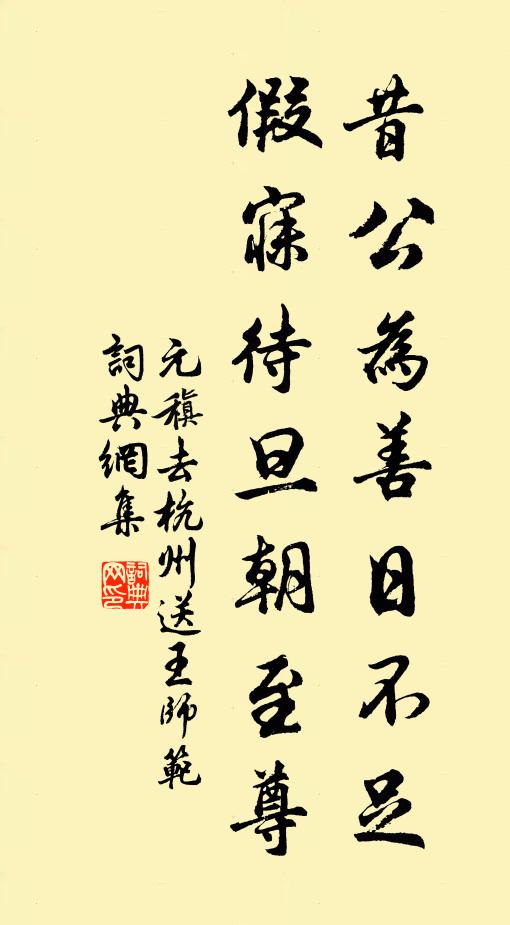 昔公為善日不足
假寐待旦朝至尊
元稹去杭州送王師範
詞典網集
詞典网印